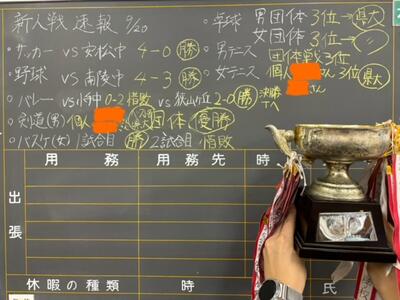 新人戦 速報 9/20
・サッカー vs 安松中 4-0 勝
・野球 vs 南陵中 4-3 勝
・バレー vs 小手中 0-2 惜敗 vs 狭山ヶ丘 2-0 勝 決勝Tへ
・剣道(男) 個人 さん 団体 優勝
・バスケ(女) 1試合目 勝 2試合目 惜敗
・卓球 男団体 3位→県大
女団体 3位→〃
・男テニス 団体戦3位
・女テニス 個人 さん 3位 県大
さん
用務 用務先 時
出張
休暇の種類 時 氏